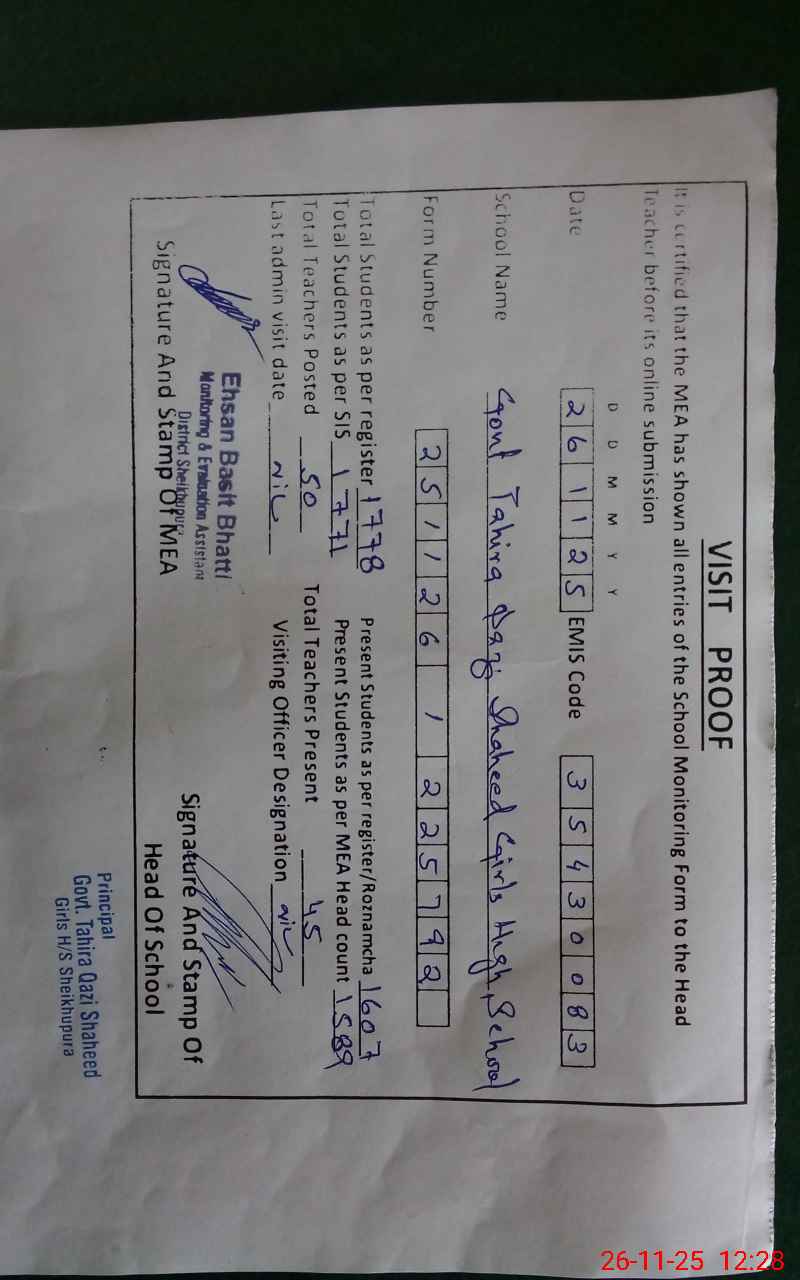 VISIT PROOF
It is certified that the MEA has shown all entries of the School Monitoring Form to the Head
Teacher before its online submission
D D M M Y Y
Date 2 6 1 1 2 5 EMIS Code 3 5 4 3 0 0 8 3
School Name Govt Tahira Qazi Shaheed Girls High School
Form Number 2 5 1 1 2 6 1 2 2 5 7 9 2
Total Students as per register 1778 Present Students as per register/Roznamcha 1607
Total Students as per SIS 1771 Present Students as per MEA Head count 1589
Total Teachers Posted 50 Total Teachers Present 45
Last admin visit date NiL Visiting Officer Designation NiL
Ehsan Basit Bhatti
Monitoring & Evaluation Assistant
District Sheikhupura
Signature And Stamp Of MEA
Signature And Stamp Of
Head Of School
Principal
Govt. Tahira Qazi Shaheed
Girls H/S Sheikhupura
26-11-25 12:28